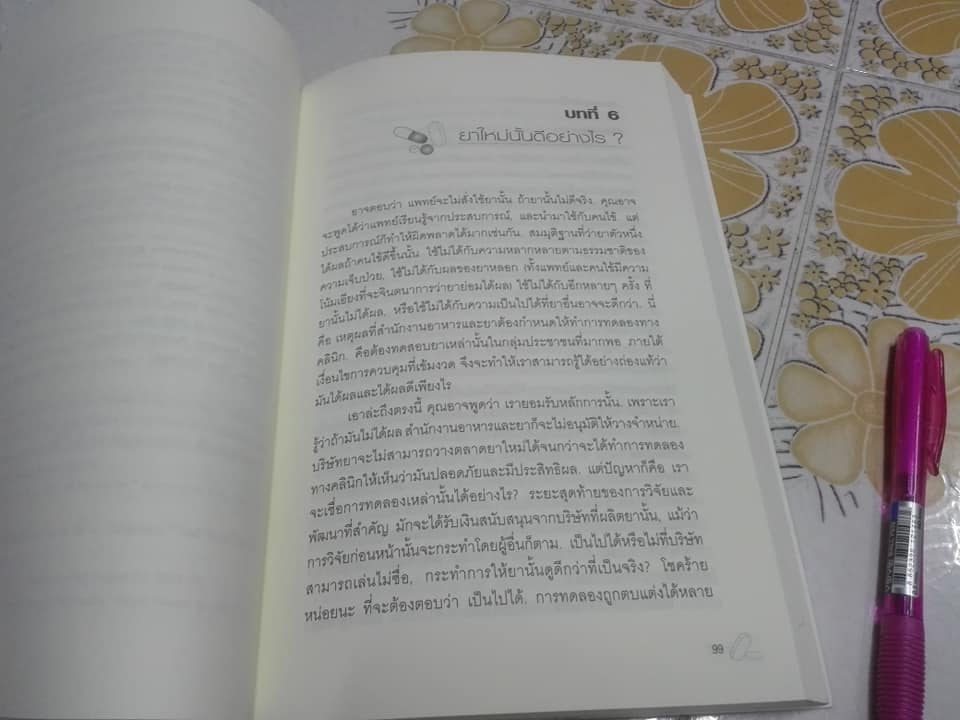 บทที่ 6
ยาใหม่นั้นดีอย่างไร ?
อาจตอบว่า แพทย์จะไม่สั่งใช้ยานั้น ถ้ายานั้นไม่ดีจริง. คุณอาจ
จะพูดได้ว่าแพทย์เรียนรู้จากประสบการณ์, และนำมาใช้กับคนไข้. แต่
ประสบการณ์ก็ทำให้ผิดพลาดได้มากเช่นกัน. สมมุติฐานที่ว่ายาตัวหนึ่ง
ได้ผลถ้าคนไข้ดีขึ้นนั้น ใช้ไม่ได้กับความหลากหลายตามธรรมชาติของ
ความเจ็บป่วย, ใช้ไม่ได้กับผลของยาหลอก (ทั้งแพทย์และคนไข้มีความ
โน้มเอียงที่จะจินตนาการว่ายาย่อมได้ผล) ใช้ไม่ได้กับอีกหลายๆ ครั้ง ที่
ยานั้นไม่ได้ผล, หรือใช้ไม่ได้กับความเป็นไปได้ที่ยาอื่นอาจจะดีกว่า. นี่
คือ เหตุผลที่สำนักงานอาหารและยาต้องกำหนดให้ทำการทดลองทาง
คลินิก. คือต้องทดสอบยาเหล่านั้นในกลุ่มประชาชนที่มากพอ ภายใต้
เงื่อนไขการควบคุมที่เข้มงวด จึงจะทำให้เราสามารถรู้ได้อย่างถ่องแท้ว่า
มันได้ผลและได้ผลดีเพียงไร
เอาล่ะถึงตรงนี้ คุณอาจพูดว่า เรายอมรับหลักการนั้น. เพราะเรา
รู้ว่าถ้ามันไม่ได้ผล สำนักงานอาหารและยาก็จะไม่อนุมัติให้วางจำหน่าย.
บริษัทยาจะไม่สามารถวางตลาดยาใหม่ได้จนกว่าจะได้ทำการทดลอง
ทางคลินิกให้เห็นว่ามันปลอดภัยและมีประสิทธิผล. แต่ปัญหาก็คือ เรา
จะเชื่อการทดลองเหล่านั้นได้อย่างไร? ระยะสุดท้ายของการวิจัยและ
พัฒนาที่สำคัญ มักจะได้รับเงินสนับสนุนจากบริษัทที่ผลิตยานั้น, แม้ว่า
การวิจัยก่อนหน้านั้นจะกระทำโดยผู้อื่นก็ตาม. เป็นไปได้หรือไม่ที่บริษัท
สามารถเล่นไม่ซื่อ, กระทำการให้ยานั้นดูดีกว่าที่เป็นจริง? โชคร้าย
หน่อยนะ ที่จะต้องตอบว่า เป็นไปได้. การทดลองถูกตบแต่งได้หลาย
99